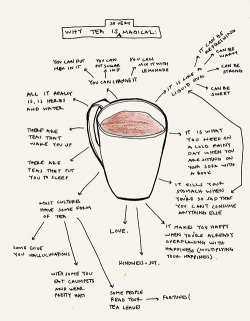 SO VERY
WHY TEA IS MAGICAL:
YOU CAN PUT
MILK IN IT
YOU CAN
PUT SUGAR
IN IT
YOU CAN
MIX IT WITH
LEMONADE
YOU CAN CHANGE IT
IT IS LIKE A
LIQUID HUG
IT CAN BE
REFRESHING
CAN BE
WARM
CAN BE
STRONG
CAN BE
SWEET
ALL IT REALLY
IS, IS HERBS
AND WATER
THERE ARE
TEAS THAT
WAKE YOU UP
THERE ARE
TEAS THAT PUT
YOU TO SLEEP
IT IS WHAT
YOU NEED ON
A COLD RAINY
DAY WHEN YOU
ARE SITTING ON
YOUR SOFA WITH
A BOOK
IT FILLS YOUR
STOMACH WHEN
YOU'RE SO SAD THAT
YOU CAN'T CONSUME
ANYTHING ELSE
MOST CULTURES
HAVE SOME FORM
OF TEA
IT MAKES YOU HAPPY
WHEN YOU'RE ALREADY
OVERFLOWING WITH
HAPPINESS (MULTIPLYING
YOUR HAPPINESS)
LOVE.
KINDNESS + JOY.
SOME GIVE
YOU HALLUCINATIONS
WITH SOME YOU
EAT CRUMPETS
AND WEAR
PRETTY HATS
SOME PEOPLE
READ YOUR
TEA LEAVES
FORTUNES!